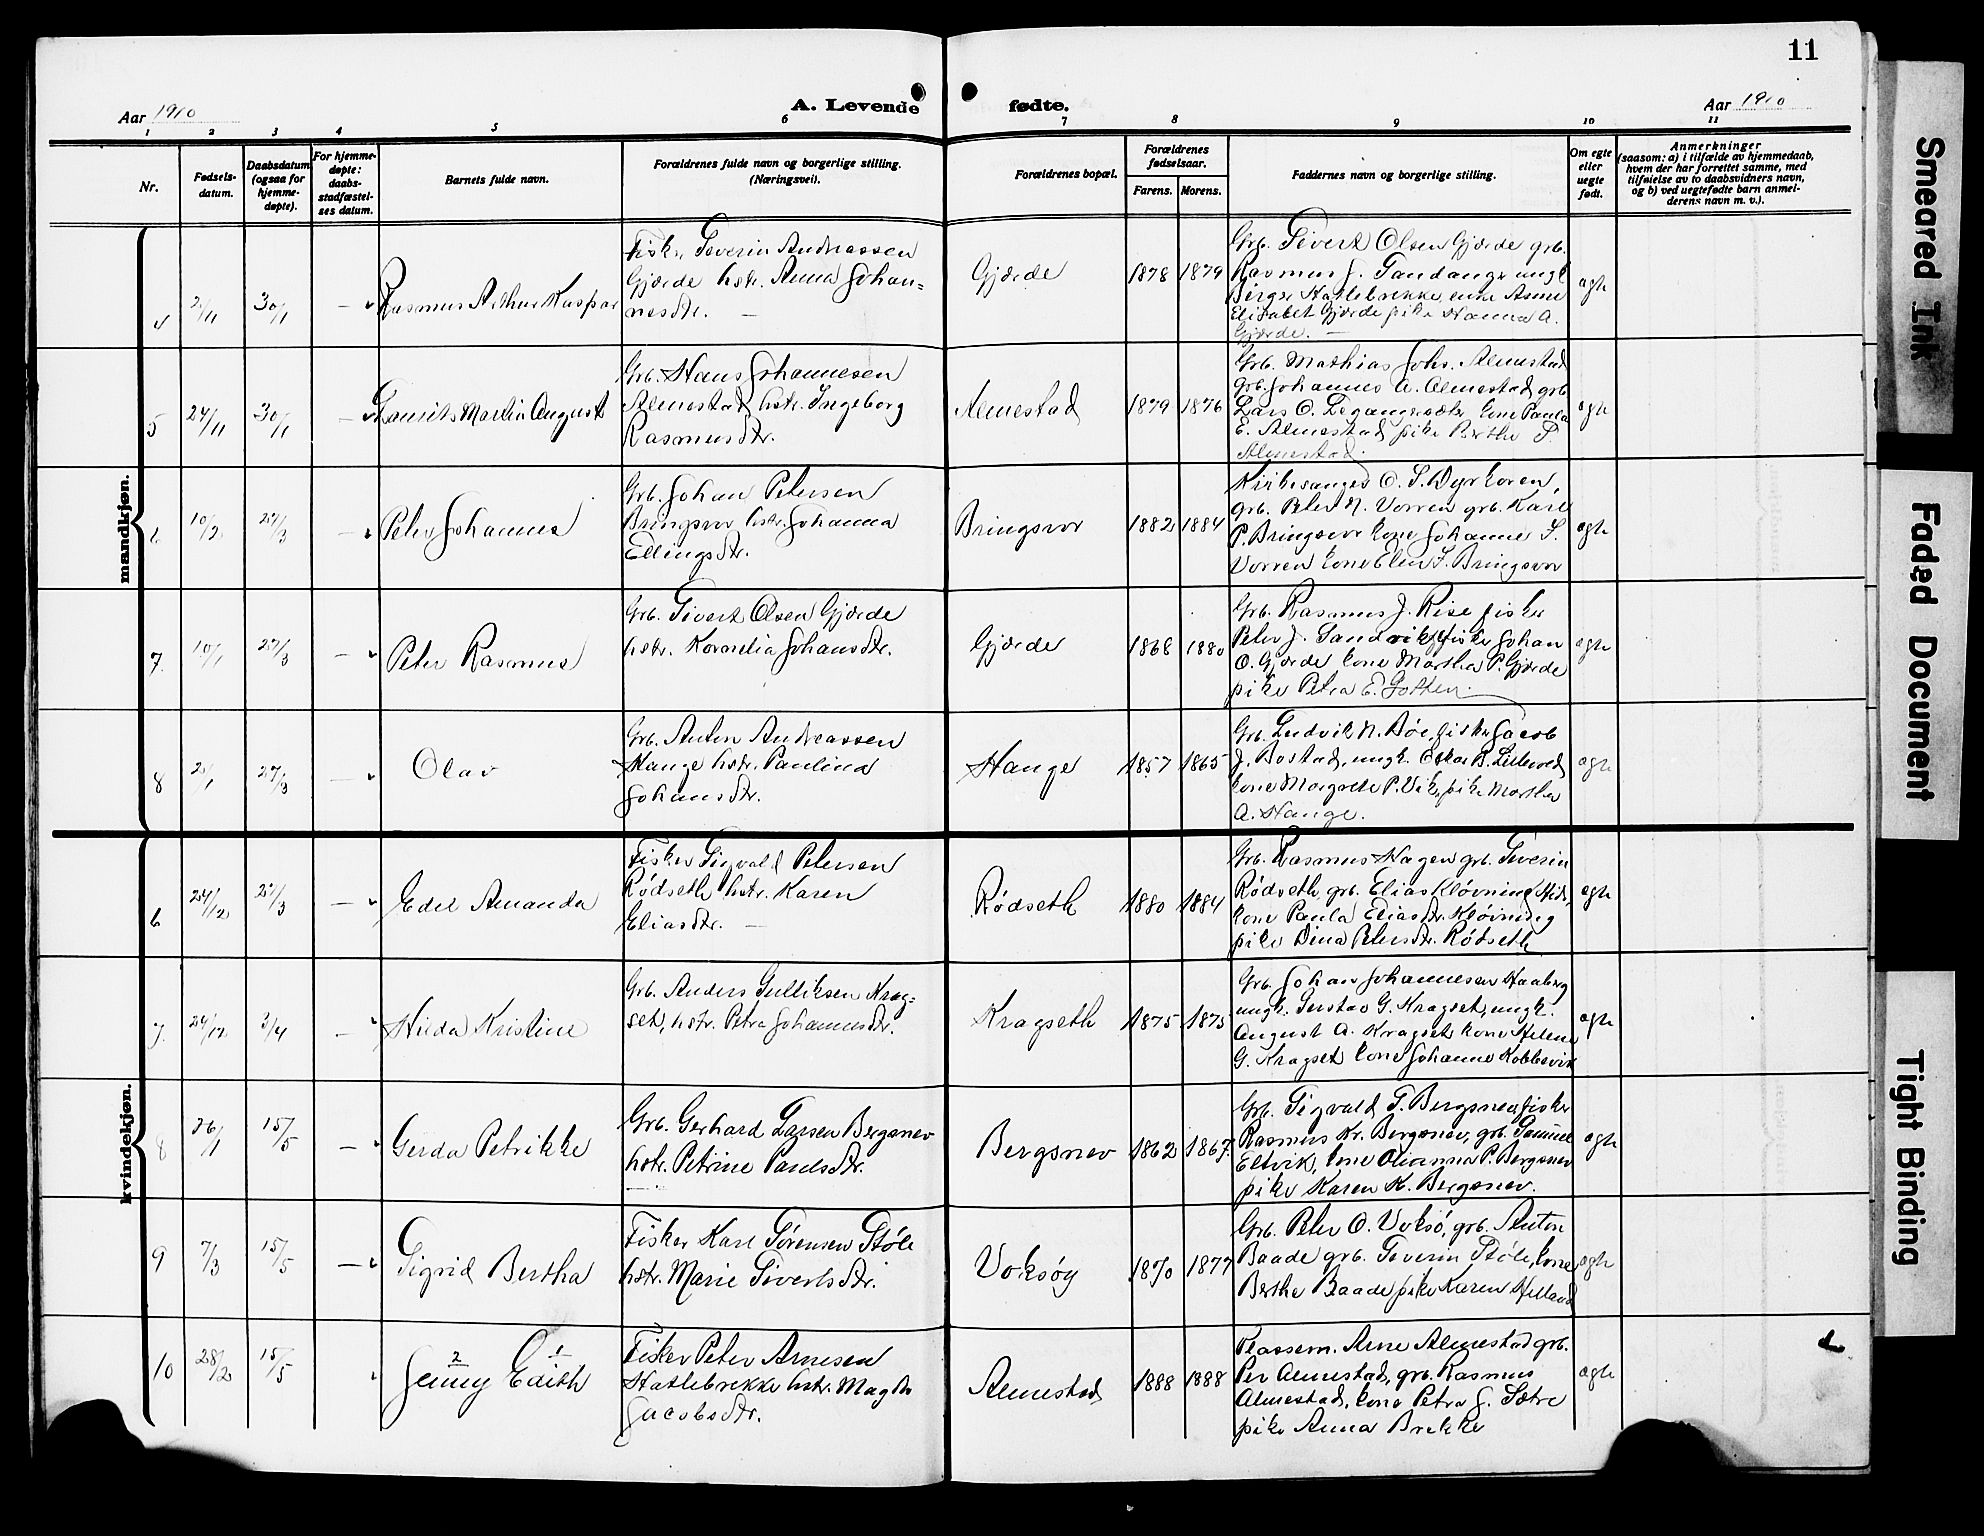 11
Aar 1910
A. Levende fødte.
Aar 1910
1 2 3 4 5 6 7 8 9 10 11
Nr.
Fødsels-
datum.
Daabsdatum
(ogsaa for
hjemme-
døpte).
For hjemme-
døpte:
daabs-
stadfæstel-
ses datum.
Barnets fulde navn.
Forældrenes fulde navn og borgerlige stilling.
(Næringsvei).
Forældrenes bopæl.
Forældrenes
fødselsaar.
Farens. Morens.
Faddernes navn og borgerlige stilling.
Om egte
eller
uegte
født.
Anmerkninger
(saasom: a) i tilfælde av hjemmedaab,
hvem der har forrettet samme, med
tilføielse av to daabsvidners navn,
og b) ved uegtefødte barn anmel-
derens navn m. v.).
mandkjøn.
4
2/11
30/1
Rasmus Arthur Kaspar
Fisker Severin Andreassen
Gjærde hstr. Anna Johan-
nesdtr.
Gjærde
1878 1879
Grb. Sivert Olsen Gjærde grb.
Rasmus J. Tandange ungk
Birger Hatlebrekke, enke Anne
Elisabet Gjærde pike Hanna A.
Gjærde.
egte
5
24/11
30/1
Laurits Martin August
Grb. Hans Johannesen
Almestad hstr. Ingeborg
Rasmusdtr.
Almestad
1879 1876
Grb. Mathias Johs. Almestad
grb. Johannes A. Almestad grb
Lars O. Legangersæter kone Paula
E. Almestad pike Berthe P.
Almestad.
egte
6
10/2
27/3
Peter Johannes
Grb. Johan Petersen
Bringsvor hstr. Johanna
Ellingsdtr.
Bringsvor
1882 1884
Kirkesanger O. S. Dyrkoren,
grb. Peter N. Vorren grb. Karl
P. Bringsvor kone Johanne S.
Vorren kone Elen J. Bringsvor
egte
7.
10/1
27/3
Peter Rasmus
Grb. Sivert Olsen Gjærde
hstr. Kornelia Johansdtr.
Gjærde
1868 1880
Grb. Rasmus J. Rise fisker
Peter J. Sandvik, fisker Johan
O. Gjærde kone Martha P. Gjærde
pike Petra E. Goksen.
egte
8
2/1
27/3
Olav
Grb. Anton Andreassen
Hauge hstr. Paulina
Johansdtr.
Hauge
1857 1865
Grb. Ludvik N. Bøe, fisker Jacob
J. Bostad, ungk. Oskar B. Lillevold
kone Margrete P. Vik, pike Martha
A. Hauge.
egte
kvindekjøn.
6
24/12
27/3
Edel Amanda
Fisker Sigvald Petersen
Rödseth hstr. Karen
Eliasdtr.
Rødseth
1880 1884
Grb. Rasmus Hagen grb. Severin
Rødseth, grb. Elias Kløvning Hids,
kone Paula Eliasdtr. Kløvning
pike Dina Petersdtr. Rødseth
egte
7.
24/12
3/4
Hilda Kristine
Grb. Anders Gulliksen Krag-
set, hstr. Petra Johannesdtr.
Kragseth
1875 1875
Grb. Johan Johannesen Haaberg
ungk. Gustav G. Kragset, ungk.
August A. Kragset, kone Helene
G. Kragset kone Johanne Koblevik
egte
8
26/1
15/5
Gerda Petrikke
Grb. Gerhard Larsen Bergsnev
hstr. Petrine Paulsdtr.
Bergsnev
1862 1867.
Grb. Sigvald T. Bergsnev, fisker
Rasmus Kr. Bergsnev, grb. Samuel
Eltvik, kone Olianna P. Bergsnev
pike Karen K. Bergsnev.
egte
9
7/3
15/5
Sigrid Bertha
Fisker Karl Sørensen Støle
hstr. Marie Sivertsdtr.
Voksöy
1870 1877
Grb. Peter O. Voksö, grb. Anton
Baade grb. Severin Støle, kone
Berthe Baade pike Karen Helland
egte
10
28/2
15/5
2 1
Jenny Edith
Fisker Peter Arnesen
Hatlebrekke hstr. Magda
Jacobsdtr.
Almestad
1888 1888
Plassem. Arne Almestad grb.
Per Almestad, grb. Rasmus
Almestad, kone Petra J. Sætre
pike Anna Brekke
egte
Smeared Ink
Faded Document
Tight Binding